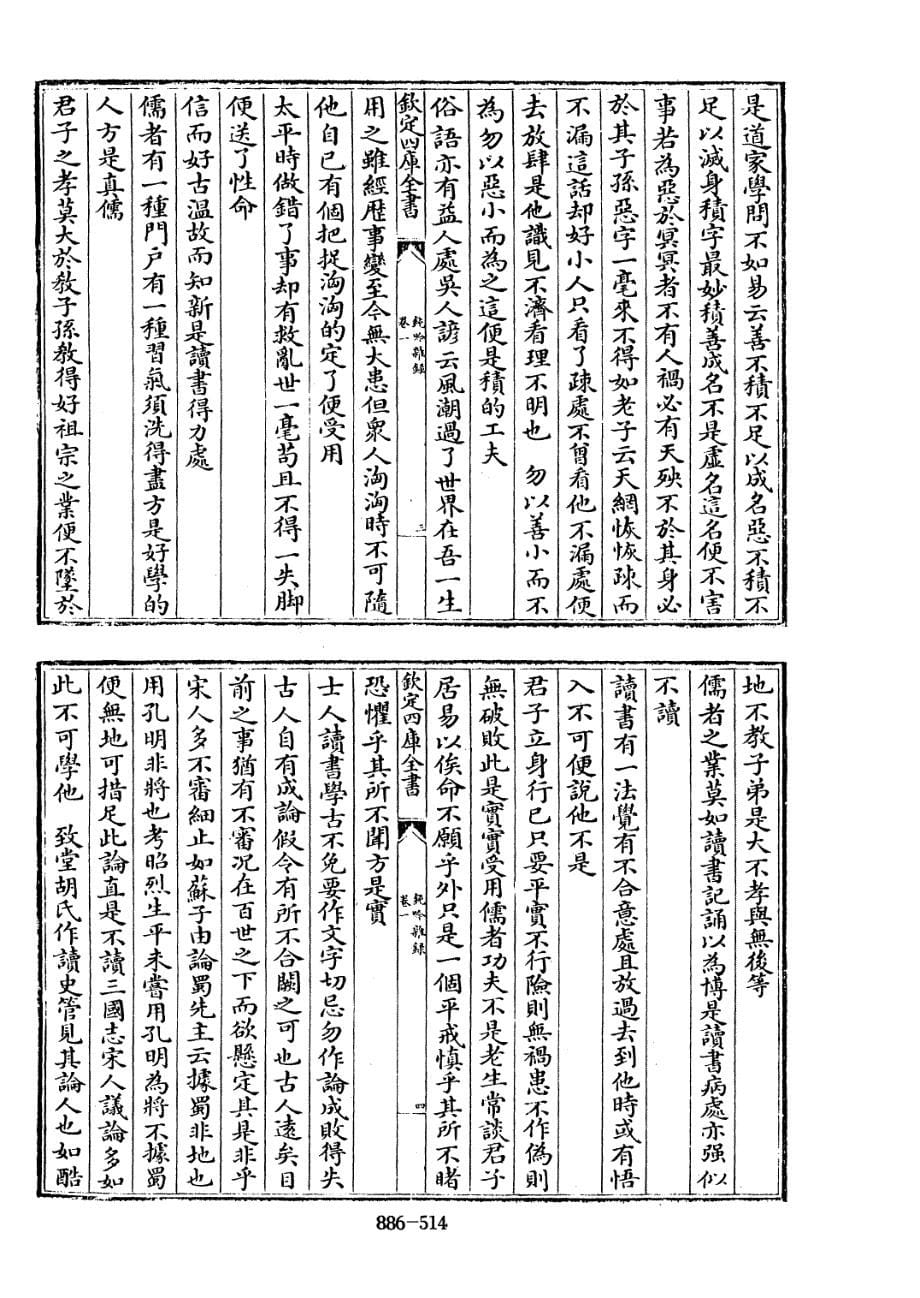 是道家學問不如易云善不積不足以成名惡不積不
足以滅身積字最妙積善成名不是虛名這名便不害
事若為惡於冥冥者不有人禍必有天殃不於其身必
於其子孫惡字一毫來不得如老子云天網恢恢疎而
不漏這話却好小人只看了疎處不曾看他不漏處便
去放肆是他識見不濟看理不明也 勿以善小而不
為勿以惡小而為之這便是積的工夫
俗語亦有益人處吳人諺云風潮過了世界在吾一生
欽定四庫全書
鈍吟雜録
卷一
三
用之雖經歷事變至今無大患但衆人洶洶時不可隨
他自已有個把捉洶洶的定了便受用
太平時做錯了事却有救亂世一毫苟且不得一失脚
便送了性命
信而好古溫故而知新是讀書得力處
儒者有一種門戶有一種習氣須洗得盡方是好學的
人方是真儒
君子之孝莫大於教子孫教得好祖宗之業便不墜於
地不教子弟是大不孝與無後等
儒者之業莫如讀書記誦以為博是讀書病處亦强似
不讀
讀書有一法覺有不合意處且放過去到他時或有悟
入不可便說他不是
君子立身行已只要平實不行險則無禍患不作偽則
無破敗此是實實受用儒者功夫不是老生常談君子
居易以俟命不願乎外只是一個平戒慎乎其所不睹
欽定四庫全書
鈍吟雜録
卷一
四
恐懼乎其所不聞方是實
士人讀書學古不免要作文字切忌勿作論成敗得失
古人自有成論假令有所不合闕之可也古人遠矣目
前之事猶有不審況在百世之下而欲懸定其是非乎
宋人多不審細止如蘇子由論蜀先主云據蜀非地也
用孔明非將也考昭烈生平未嘗用孔明為將不據蜀
便無地可措足此論直是不讀三國志宋人議論多如
此不可學他 致堂胡氏作讀史管見其論人也如酷
886-514